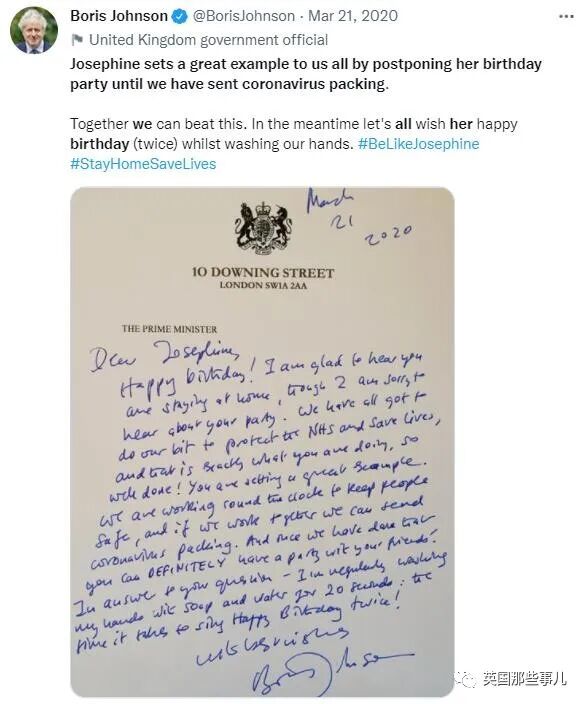 Boris Johnson @BorisJohnson · Mar 21, 2020
United Kingdom government official
Josephine sets a great example to us all by postponing her birthday
party until we have sent coronavirus packing.
Together we can beat this. In the meantime let's all wish her happy
birthday (twice) whilst washing our hands. #BeLikeJosephine
#StayHomeSaveLives
March
21
2020
10 DOWNING STREET
LONDON SW1A 2AA
THE PRIME MINISTER
Dear Josephine,
Happy birthday! I am glad to hear you
are staying at home, though I am sorry to
hear about your party. We have all got to
do our bit to protect the NHS and save lives,
and that is exactly what you are doing, so
well done! You are setting a great example.
We are working round the clock to keep people
safe, and if we work together we can send
coronavirus packing. And once we have done that
you can DEFINITELY have a party with your friends!
In answer to your question - I'm regularly washing
my hands with soap and water for 20 seconds: the
time it takes to sing Happy Birthday twice!
With best wishes
Boris Johnson
英国那些事儿